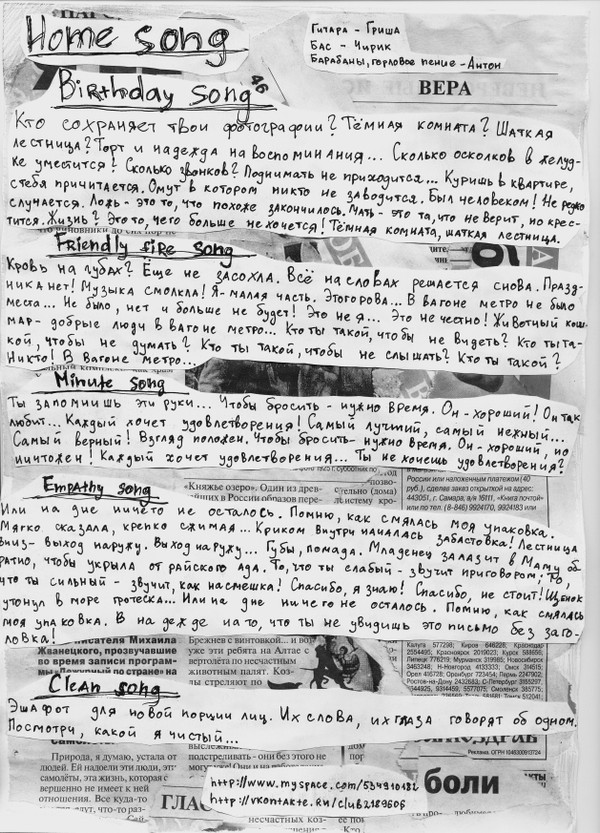 Home song
Гитара - Гриша
Бас - Чирик
Барабаны, горловое пение - Антон
ВЕРА
Birthday song
Кто сохраняет твои фотографии? Тёмная комната? Шаткая
лестница? Торт и надежда на воспоминания... Сколько осколков в желуд-
ке уместится! Сколько звонков? Поднимать не приходится... Куришь в квартире,
с тебя причитается. Омут в котором никто не заводится. Был человеком! Не редко
случается. Ложь - это то, что похоже закончилось. Мать - это та, что не верит, но крес-
тится. Жизнь? Это то, чего больше не хочется! Тёмная комната, шаткая лестница.
Friendly fire song
Кровь на губах? Ёще не засохла. Всё на словах решается снова. Празд-
ника нет! Музыка смолкла! Я - малая часть. Этого рова... В вагоне метро не было
места... Не было, нет и больше не будет! Это не я... Это не честно! Животный кош-
мар - добрые люди в вагоне метро... Кто ты такой, чтобы не видеть? Кто ты та-
кой, чтобы не думать? Кто ты такой, чтобы не слышать? Кто ты такой?
Никто! В вагоне метро...
Minute song
Ты запомнишь эти руки... Чтобы бросить - нужно время. Он - хороший! Он так
любит... Каждый хочет удовлетворения! Самый лучший, самый нежный...
Самый верный! Взгляд положен. Чтобы бросить - нужно время. Он - хороший, но
ничтожен! Каждый хочет удовлетворения... Ты не хочешь удовлетворения?
«Княжье озеро». Один из древ-
нейших в России образов пере-
позво-
ительно (дома)
России или наложенным платежом (40
руб.), сделав заказ открыткой на адрес:
443051, г. Самара, а/я 16111, «Книга почтой»
или по тел. (8-846) 9924170, 9924183 или
Empathy song
Или на дне ничего не осталось. Помню, как смялась моя упаковка.
Мягко сказала, крепко сжимая... Криком внутри началась забастовка! Лестница
вниз - выход наружу. Выход наружу... Губы, помада. Младенец залазит в Маму об-
ратно, чтобы укрыла от райского ада. То, что ты слабый - звучит приговором; То,
что ты сильный - звучит, как насмешка! Спасибо, я знаю! Спасибо, не стоит! Щенок
утонул в море гротеска... Или на дне ничего не осталось. Помню, как смялась
моя упаковка. В надежде на то, что ты не увидишь это письмо без заго-
ловка!
писателя Михаила
Жванецкого, прозвучавшие
во время записи програм-
мы «Дежурный по стране» на
Брежнев с винтовкой... и воз
уже эти ребята на Алтае с
вертолёта по несчастным
животным палят. Коз-
лы стреляют по
Clean song
Эшафот для новой порции лиц. Их слова, их глаза говорят об одном.
Посмотри, какой я чистый...
Природа, я думаю, устала от
людей. Ей надоели эти люди, эти
самолёты, эта жизнь, которая с
вершенно не имеет к ней
отношения. Все куда-то
подстреливать - они без этого не
http://www.myspace.com/534910182
http://vkontakte.ru/club2189606
боли